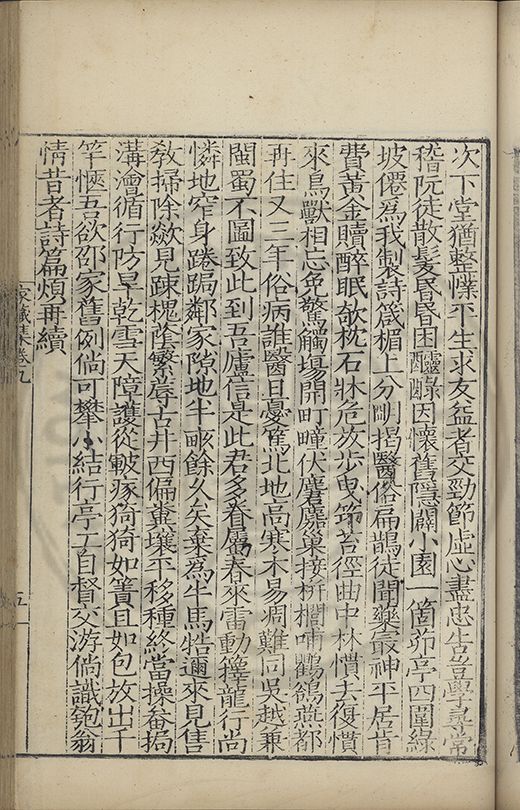 次下堂猶整慄平生求友益者交勁節虛心盡忠告豈學尋常
稽阮徒散髮昏昏困醲醁因懷舊隱闢小園一箇茆亭四圍綠
坡僊為我製詩箴楣上分明揭醫俗扁鵲徒聞藥最神平居肯
費黃金贖醉眠欹枕石牀危放步曳筇苔徑曲中林慣去復慣
來鳥獸相忘免驚觸場開町疃伏麏麚巢接栟櫚哺鸜鵒燕都
再住又三年俗病誰醫日憂篤北地高寒木易凋難同吳越兼
閩蜀不圖致此到吾廬信是此君多眷屬春來雷動籜龍行尚
憐地窄身踡跼鄰家隙地半畝餘久矣棄為牛馬牿邇來見售
敎掃除斂見疎槐蔭繁蓐古井西偏糞壤平移種終當操畚挶
溝澮循行防旱乾雪天障護從皸瘃猗猗如簀且如包放出千
竿愜吾欲邵家舊例倘可攀小結行亭工自督交游倘識匏翁
情昔者詩篇煩再續
家藏集卷九
五